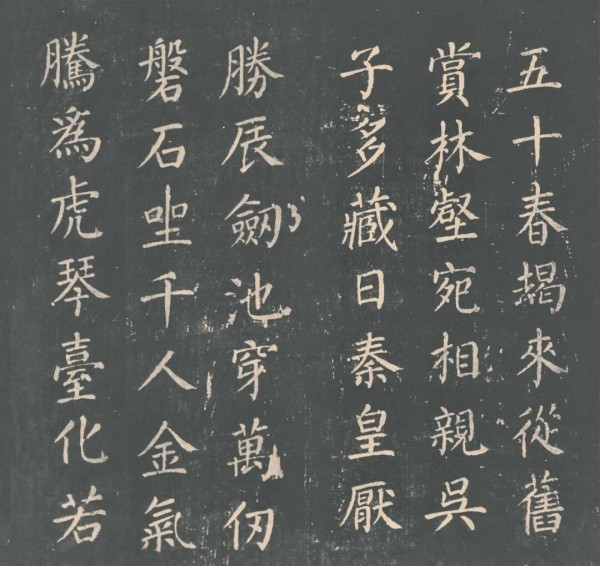 五十春朅來從舊
賞林壑宛相親吳
子多藏日秦皇厭
勝辰劒池穿萬仞
磐石坐千人金氣
騰為虎琴臺化若